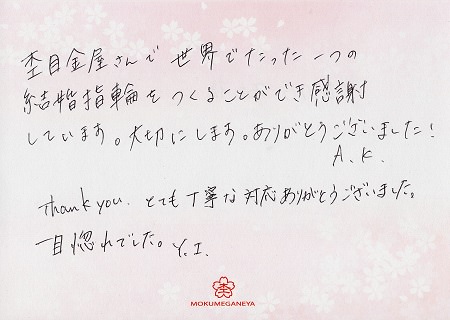 杢目金屋さんで世界でたった一つの
結婚指輪をつくることができ感謝
しています。大切にします。ありがとうございました!
A.K.
Thank you. とても丁寧な対応ありがとうございました。
一目惚れでした。Y.I.
MOKUMEGANEYA